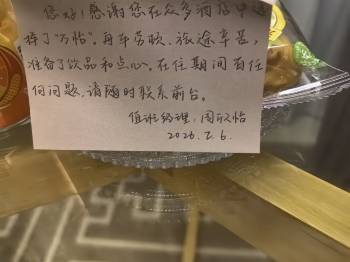 您好！感谢您在众多酒店中选
择了"万怡"。舟车劳顿、旅途辛苦，
准备了饮品和点心。在住期间有任
何问题，请随时联系前台。
值班经理：周欣怡
2026.2.6.